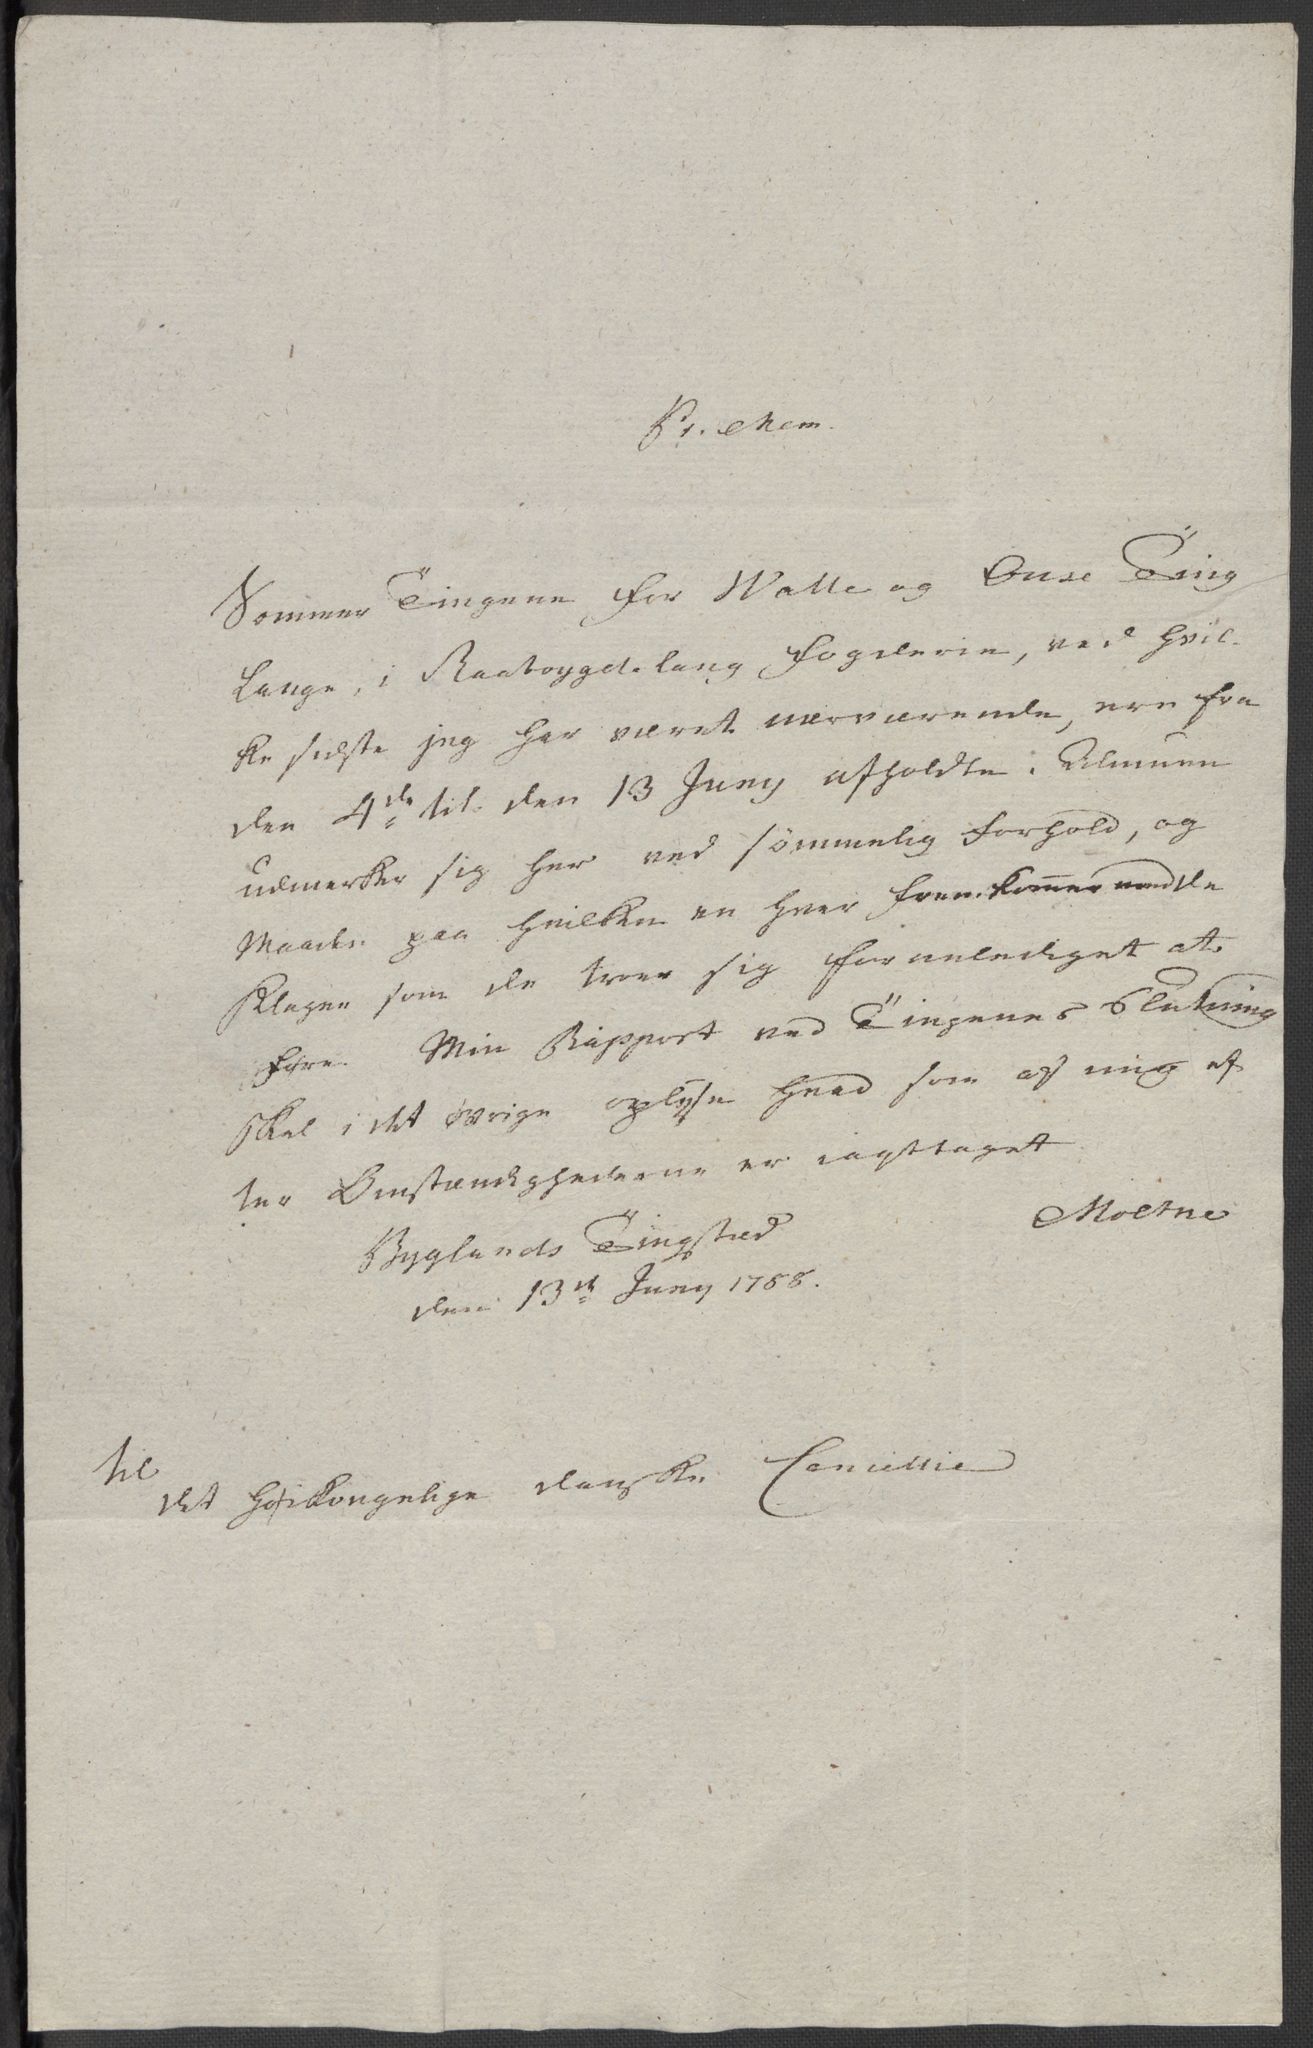 Pr. Mem.
Sommer Tingene for Walle og Ouse Ting
Lauge, i Raabygdelaug fogderie, ved hvil-
ke sidste jeg har været nærværende, ere fra
den 4de til den 13 Juny afholdte. Almuen
udmerker sig her ved sømmelig forhold, og
Maaden paa hvilken en hver fremkommer med de
Klager som de troer sig foranlediget at
føre. Min Rapport ved Tingenes Slutning
skal i det øvrige oplyse hvad som af mig ef
ter Omstændighederne er iagttaget
Moltne
Byglands Tingsted
den 13de Juny 1788.
til
det høikongelige danske Cancellie